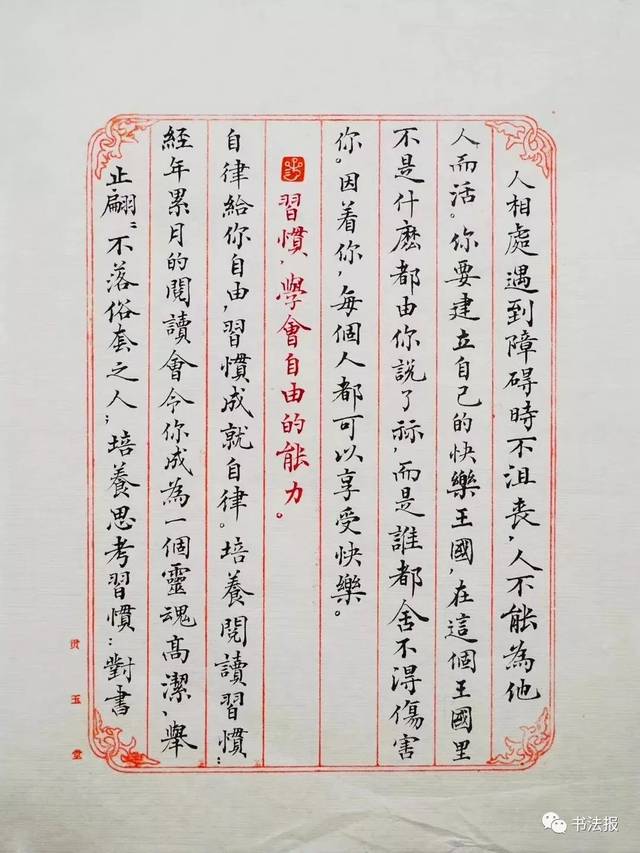 人相處遇到障碍時不沮丧，人不能為他
人而活。你要建立自己的快樂王國，在這個王國里
不是什麽都由你説了祘，而是誰都舍不得傷害
你。因着你，每個人都可以享受快樂。
習慣，學會自由的能力。
自律給你自由，習慣成就自律。培養閱讀習慣：
經年累月的閱讀會令你成為一個靈魂高潔、舉
止翩〻不落俗套之人；培養思考習慣：對書
贯玉堂
书法报